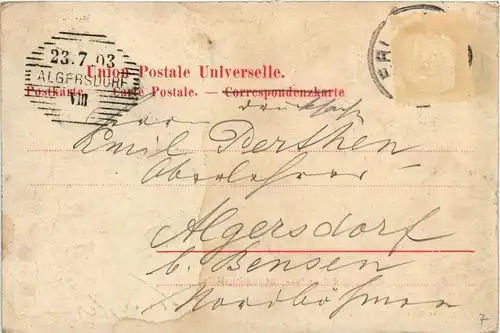 23.7.03
ALGERSDORF
VIII
Union Postale Universelle.
Postkarte. — Carte Postale. — Correspondenzkarte
Drucksache
Herrn
Emil Perthen
Oberlehrer
Algersdorf
b. Bensen
Nordböhmen
7